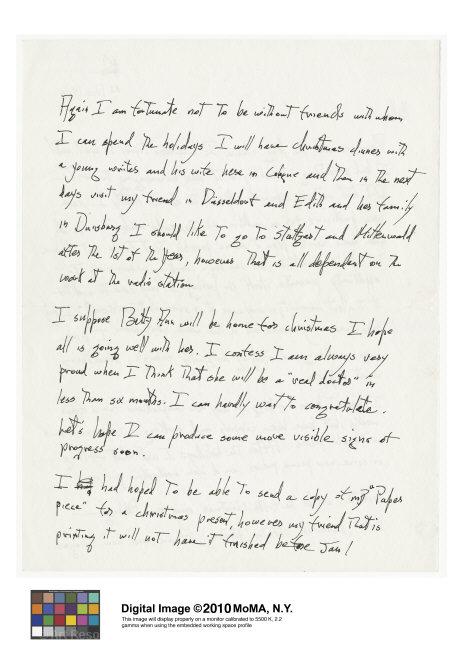 Again I am fortunate not to be without friends with whom
I can spend the holidays I will have christmas dinner with
a young writer and his wife here in Cologne and then in the next
days visit my friend in Dusseldorf and Edith and her family
in Duisburg I should like to go to Stuttgart and Mittenwald
after the 1st of the year, however that is all dependent on the
work at the radio station
I suppose Betty Ann will be home for christmas I hope
all is going well with her. I confess I am always very
proud when I think that she will be a "real doctor" in
less than six months. I can hardly wait to congratulate.
Let's hope I can produce some more visible signs of
progress soon.
I had hoped to be able to send a copy of my "Paper
piece" for a christmas present, however my friend that is
printing it will not have it finished before Jan 1
Digital Image ©2010 MoMA, N.Y.
This image will display properly on a monitor calibrated to 5500 K, 2.2
gamma when using the embedded working space profile